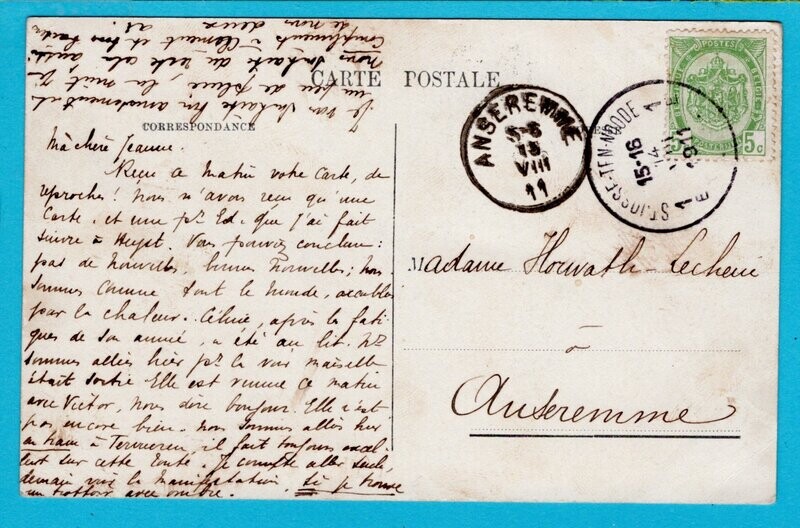 CARTE POSTALE
CORRESPONDANCE
Ma chère Jeanne.
Reçu ce matin votre carte, de
reproches! Nous n'avons reçu qu'une
Carte. et une pr Ed. que j'ai fait
suivre à Heyst. Vous pouvez conclure:
pas de nouvelles, bonnes nouvelles; Nous
sommes comme tout le monde, accablés
par la chaleur. Céline, après les fati
gues de son année, a été au lit. Ns
sommes allés hier pr la voir mais elle
était sortie Elle est venue ce matin
avec Victor, nous dire bonjour. Elle n'est
pas encore bien. nous sommes allés hier
en tram à Tervueren, il fait toujours excel
lent sur cette route. Je compte aller seule,
demain voir la Manifestation. si je trouve
un trottoir avec ombre.
Je vous souhaite un
peu de pluie, la nuit
Compliments à Clément et
de nous deux
POSTES
5 5c
ANSEREMME
5-6
15
VIII
11
ST-JOSSE-TEN-NOODE
15-16
14
VIII
1911
1 E
1 E
Madame Horvath-Lecheni
à
Anseremme